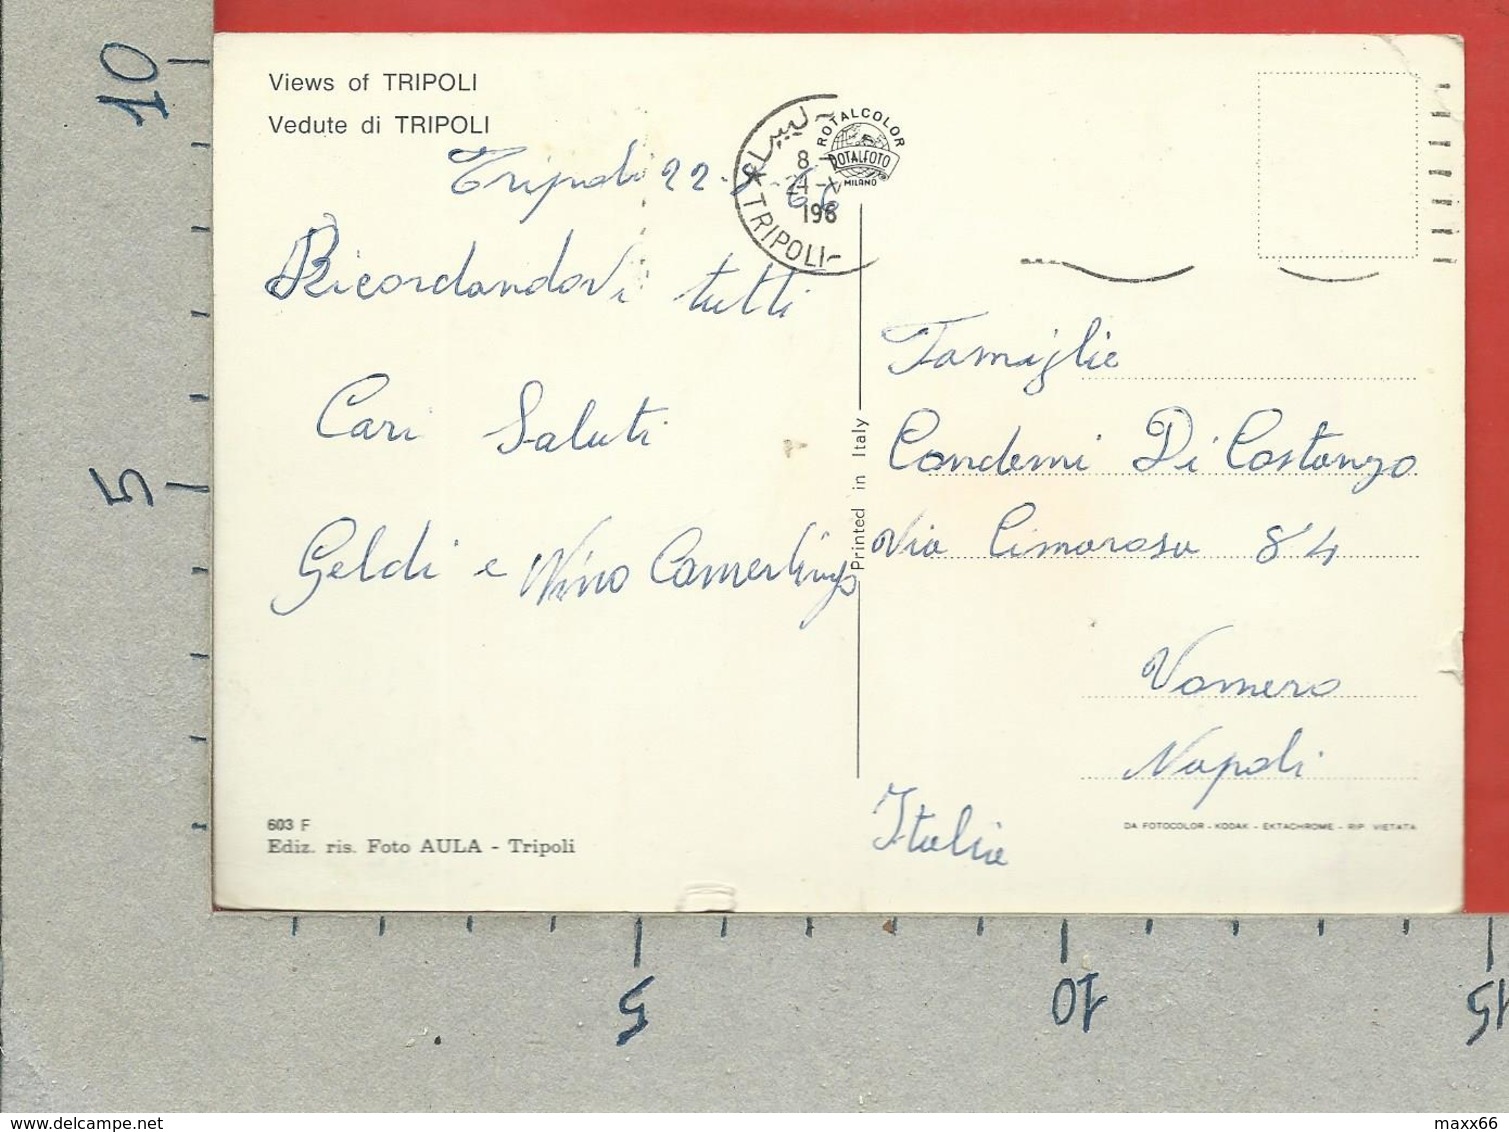 Views of TRIPOLI
Vedute di TRIPOLI
Tripoli 22
Ricordandovi tutti
Cari Saluti
Geldi e Nino Camerlingo
603 F
Ediz. ris. Foto AULA - Tripoli
8
24-X
196
TRIPOLI
ROTALCOLOR
ROTALFOTO
MILANO
Printed in Italy
Famiglie
Condemi Di Costanzo
Via Cimarosa 84
Vomero
Napoli
Italia
DA FOTOCOLOR - KODAK - EKTACHROME - RIP. VIETATA
10
5
5
10
15
delcampe.net
maxx66